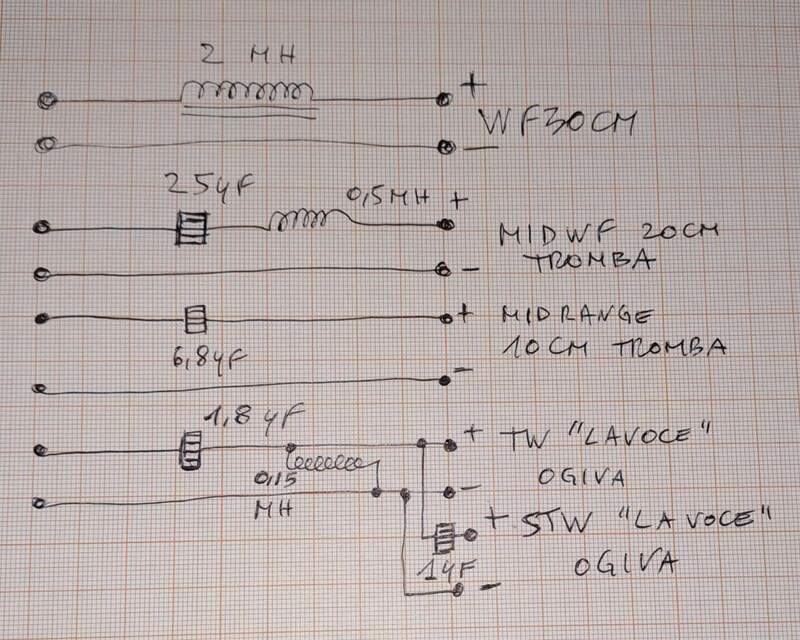 2 MH
+
WF30CM
−
25µF
0,5MH +
MIDWF 20CM
TROMBA
−
+ MIDRANGE
10CM TROMBA
6,8µF
−
1,8µF
+ TW "LAVOCE"
− OGIVA
0,15
MH
+ STW "LAVOCE"
1µF
OGIVA
−